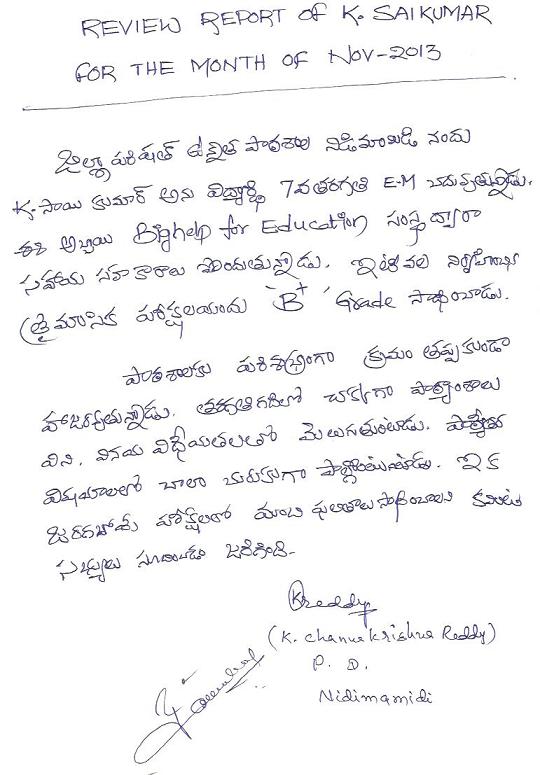 REVIEW REPORT OF K. SAIKUMAR
FOR THE MONTH OF NOV-2013
జిల్లా పరిషత్ ఉన్నత పాఠశాల నిడిమామిడి నందు
K. సాయి కుమార్ అను విద్యార్థి 7వ తరగతి E.M చదువుతున్నాడు.
ఈ అబ్బాయి Bighelp for Education సంస్థ ద్వారా
సహాయ సహకారాలు పొందుతున్నాడు. ఇటీవల నిర్వహించిన
త్రైమాసిక పరీక్షలయందు "B+" Grade సాధించాడు.
పాఠశాలకు పరిశుభ్రంగా క్రమం తప్పకుండా
హాజరవుతున్నాడు. తరగతిగదిలో చక్కగా పాఠ్యాంశాలు
విని, వినయ విధేయతలతో మెలుగుతుంటాడు. పాఠ్యేతర
విషయాలలో చాలా చురుకుగా పాల్గొంటుంటాడు. ఇక
జరగబోయే పరీక్షలలో మంచి ఫలితాలు సాధించాలని కమిటి
సభ్యులు సూచించడం జరిగింది.
KReddy
(K. Channa Krishna Reddy)
P. D.
Nidimamidi